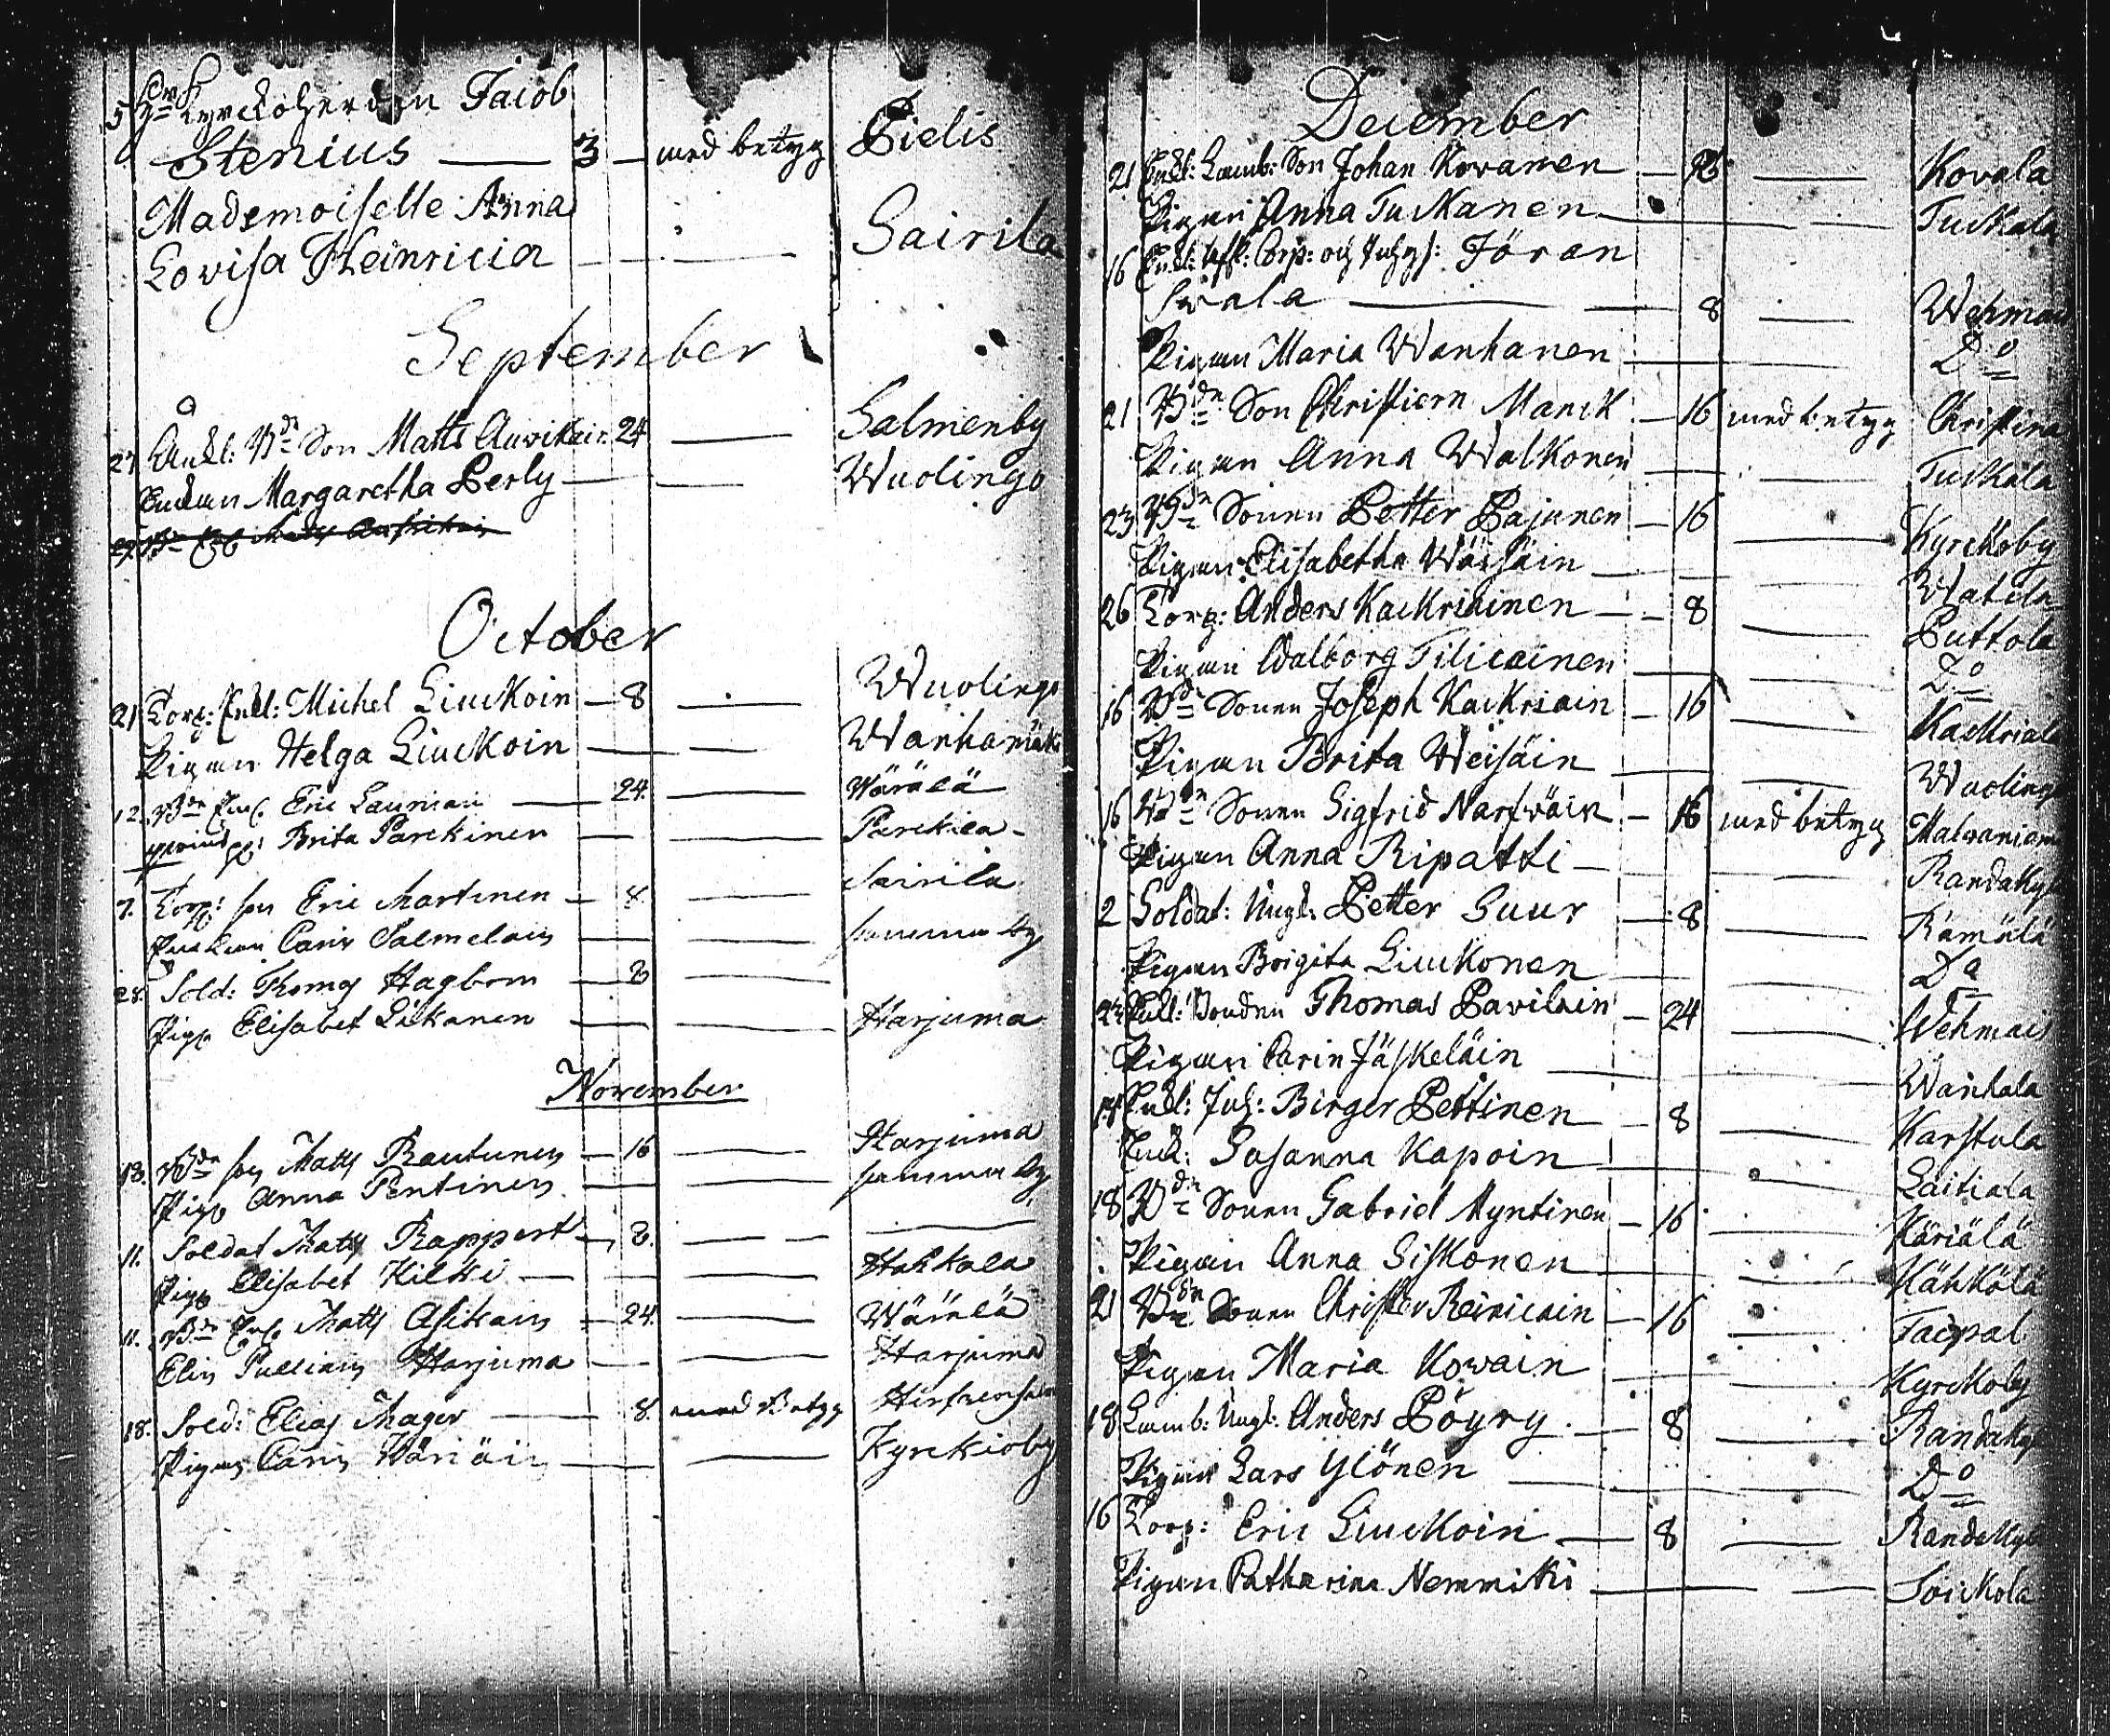 5 H:r Kyrckoherden Jacob
Stenius — 3 — med betyg Pielis
Mademoiselle Anna
Lovisa Heinricia — Sairila
September
27 Änkl: B:dn Son Matts Auvikain 24 — Salmenby
Enkan Margaretha Perly — Wuolingo
October
21 Corp: Enkl: Michel Liuckoin — 8 — Wuolingo
Pigan Helga Liuckoin — Wanhamäki
12. B:dn Enkl. Eric Lauriain — 24. — Wärälä
Brita Parckinen — Parckila
7. Corp: son Eric Martinen — 8. — Sairila
Carin Salmelain —
28. Sold: Thomas Hagbom — 8 —
Pig. Elisabet Likanen — Harjuma
November
18. B:dn son Matts Rautunen — 16 — Harjuma
Pig. Anna Pentinen —
11. Soldat Matts Rappert — 8. —
Pig. Elisabet Kilki — Hahkala
11. B:dn Enkl. Matts Asikain — 24. — Wärälä
Elin Pulliain Harjuma — Harjuma
18. Sold: Elias Mager — 8. med Betyg
Pigan Carin Käriäin — Kyrckioby
December
21 Enkl: Lamb: Son Johan Kovanen — 16 — Kovala
Pigan Anna Tuckanen — Tuckala
16 Enkl: Afsk: Corp: och Jöran
Swala — 8 — Wehmais
Pigan Maria Wanhanen — D:o
21 B:dn Son Christiern Manck — 16 med betyg Christina
Pigan Anna Walkonen — Tuckala
23 B:dn Sonen Petter Pajunen — 16 — Kyrckoby
Pigan Elisabetha Wäisäin — Watila
26 Corp: Anders Kackriainen — 8 — Puttola
Pigan Walborg Tilicainen — D:o
16 B:dn Sonen Joseph Kackriain — 16 — Kackriala
Pigan Brita Weisäin — Wuolingo
16 B:dn Sonen Sigfrid Narfwäin — 16 med betyg
Pigan Anna Ripatti — Randakylä
2 Soldat: Ungk: Petter Suur — 8 — Rämälä
Pigan Brigita Liuckonen — D:o
23 Enkl: Bonden Thomas Pavilain — 24 — Wehmais
Pigan Carin Jäskeläin — Wanhala
14 Enkl: Inh: Birger Pettinen — 8 — Karstula
Enk: Susanna Kapoin — Laitiala
18 B:dn Sonen Gabriel Myntinen — 16 — Käriälä
Pigan Anna Siskonen — Kähkölä
21 B:dn Sonen Christer Reinicain — 16 — Taipal
Pigan Maria Kowain — Kyrckoby
18 Lamb: Ungk: Anders Pöyry — 8 — Randakylä
Pigan Lars Ylönen — D:o
16 Corp: Eric Liuckoin — 8 — Randakylä
Pigan Catharina Nemmiki — Soickola